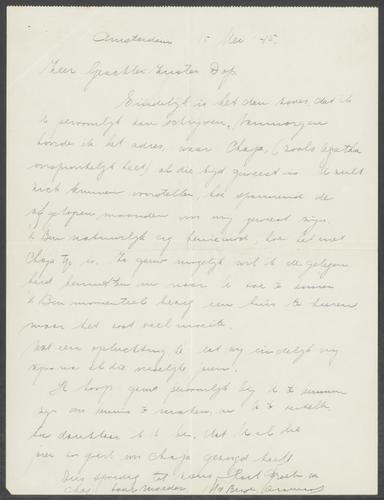 Amsterdam 15 Mei '45.
Zeer Geachte Zuster Dop.
Eindelijk is het dan zoover, dat ik
U persoonlijk kan schrijven. Vanmorgen
hoorde ik het adres, waar Chaja, (zooals Agatha
oorspronkelijk heet) al die tijd geweest is. U zult
zich kunnen voorstellen, hoe spannend de
afgeloopen maanden voor mij geweest zijn.
Ik Ben natuurlijk erg benieuwd, hoe het met
Chaja is. Zoo gauw mogelijk wil ik de gelegen
heid benutten om naar U toe te komen
Ik Ben momenteel bezig een huis te huren
maar het kost veel moeite.
Wat een opluchting is dat wij eindelijk vrij
zijn na al die vreeselijke jaren.
Ik hoop gauw persoonlijk bij U te kunnen
zijn om kennis te maken, en U te vertellen
hoe dankbaar ik U ben, dat U al die
jaren zoo goed voor Chaja gezorgd heeft.
Dus spoedig tot ziens Hart. groeten van
Chaja haar moeder,